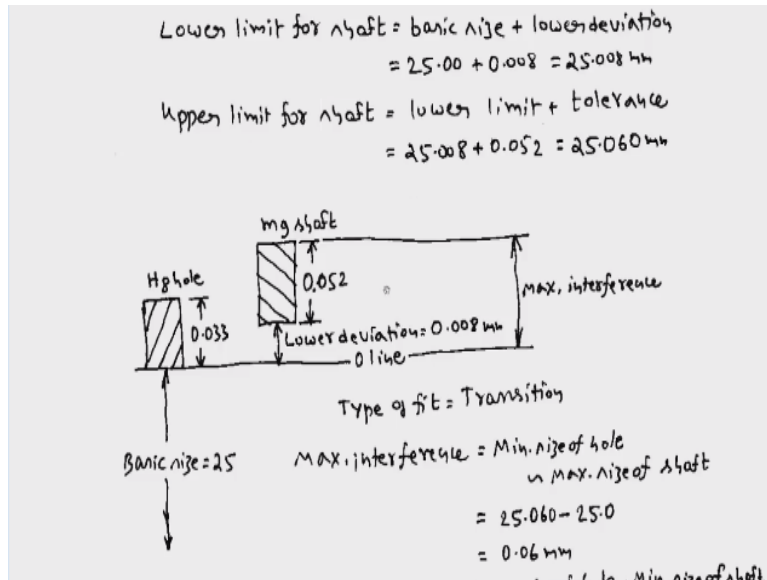 Lower limit for shaft = basic size + lower deviation
= 25.00 + 0.008 = 25.008 mm
Upper limit for shaft = lower limit + tolerance
= 25.008 + 0.052 = 25.060 mm
m9 shaft
H8 hole
0.052
Max. interference
0.033
Lower deviation = 0.008 mm
0 line
Type of fit = Transition
Basic size = 25
Max. interference = Min. size of hole
~ Max. size of shaft
= 25.060 - 25.0
= 0.06 mm
Min. size of shaft